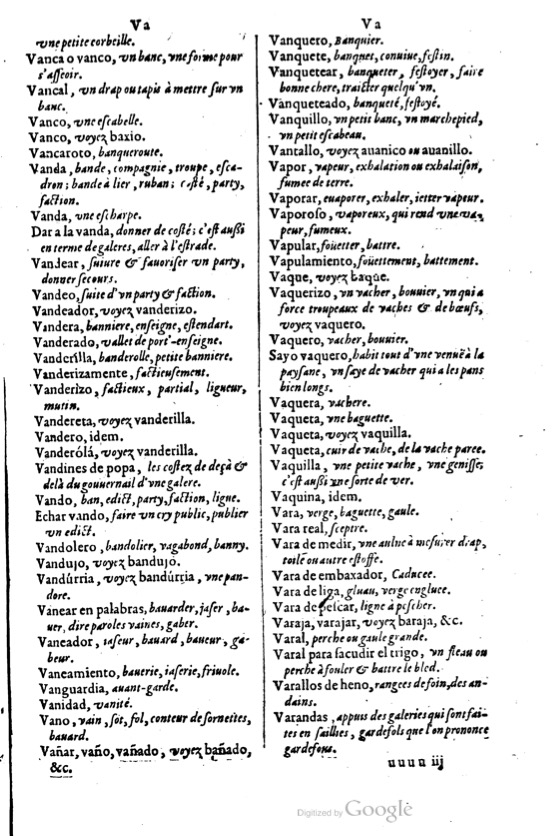 Va
vne petite corbeille.
Vanca o vanco, vn banc, vne forme pour
s'asseoir.
Vancal, vn drap ou tapis à mettre sur vn
banc.
Vanco, vne escabelle.
Vanco, voyez baxio.
Vancaroto, banqueroute.
Vanda, bande, compagnie, troupe, esca-
dron; bande à lier, ruban; costé, party,
faction.
Vanda, vne escharpe.
Dar a la vanda, donner de costé; c'est aussi
en terme de galeres, aller à l'estrade.
Vandear, suiure & fauoriser vn party,
donner secours.
Vandeo, suite d'vn party & faction.
Vandeador, voyez vanderizo.
Vandera, banniere, enseigne, estendart.
Vanderado, vallet de port'-enseigne.
Vanderilla, banderolle, petite banniere.
Vanderizamente, factieusement.
Vanderizo, factieux, partial, ligueur,
mutin.
Vandereta, voyez vanderilla.
Vandero, idem.
Vanderólá, voyez vanderilla.
Vandines de popa, les costez de deçà &
delà du gouuernail d'vne galere.
Vando, ban, edict, party, faction, ligue.
Echar vando, faire vn cry public, publier
vn edict.
Vandolero, bandolier, vagabond, banny.
Vandujo, voyez bandujo.
Vandúrria, voyez bandúrria, vne pan-
dore.
Vanear en palabras, bauarder, jaser, ba-
uer, dire paroles vaines, gaber.
Vaneador, iaseur, bauard, baueur, ga-
beur.
Vaneamiento, bauerie, iaserie, friuole.
Vanguardia, auant-garde.
Vanidad, vanité.
Vano, vain, sot, fol, conteur de sornettes,
bauard.
Vañar, vaño, vañado, voyez bañado,
&c.
Va
Vanquero, Banquier.
Vanquete, banquet, conuiue, festin.
Vanquetear, banqueter, festoyer, faire
bonne chere, traicter quelqu'vn.
Vanqueteado, banqueté, festoyé.
Vanquillo, vn petit banc, vn marchepied,
vn petit escabeau.
Vantallo, voyez auanico ou auanillo.
Vapor, vapeur, exhalation ou exhalaison,
fumee de terre.
Vaporar, euaporer, exhaler, ietter vapeur.
Vaporoso, vaporeux, qui rend vne va-
peur, fumeux.
Vapular, foüetter, battre.
Vapulamiento, foüettement, battement.
Vaque, voyez baque.
Vaquerizo, vn vacher, bouuier, vn qui a
force troupeaux de vaches & de bœufs,
voyez vaquero.
Vaquero, vacher, bouuier.
Sayo vaquero, habit tout d'vne venuë à la
paysane, vn saye de vacher qui a les pans
bien longs.
Vaquera, vachere.
Vaqueta, vne baguette.
Vaqueta, voyez vaquilla.
Vaqueta, cuir de vache, de la vache paree.
Vaquilla, vne petite vache, vne genisse,
c'est aussi vne sorte de ver.
Vaquina, idem.
Vara, verge, baguette, gaule.
Vara real, sceptre.
Vara de medir, vne aulne à mesurer drap,
toile ou autre estoffe.
Vara de embaxador, Caducee.
Vara de liga, gluau, verge engluee.
Vara de pescar, ligne à pescher.
Varaja, varajar, voyez baraja, &c.
Varal, perche ou gaule grande.
Varal para sacudir el trigo, vn fleau ou
perche à fouler & battre le bled.
Varallos de heno, rangees de foin, des an-
dains.
Varandas, appuis des galeries qui sont fai-
tes en saillies, gardefols que l'on prononce
gardefous.
uuuu iij
Digitized by Google